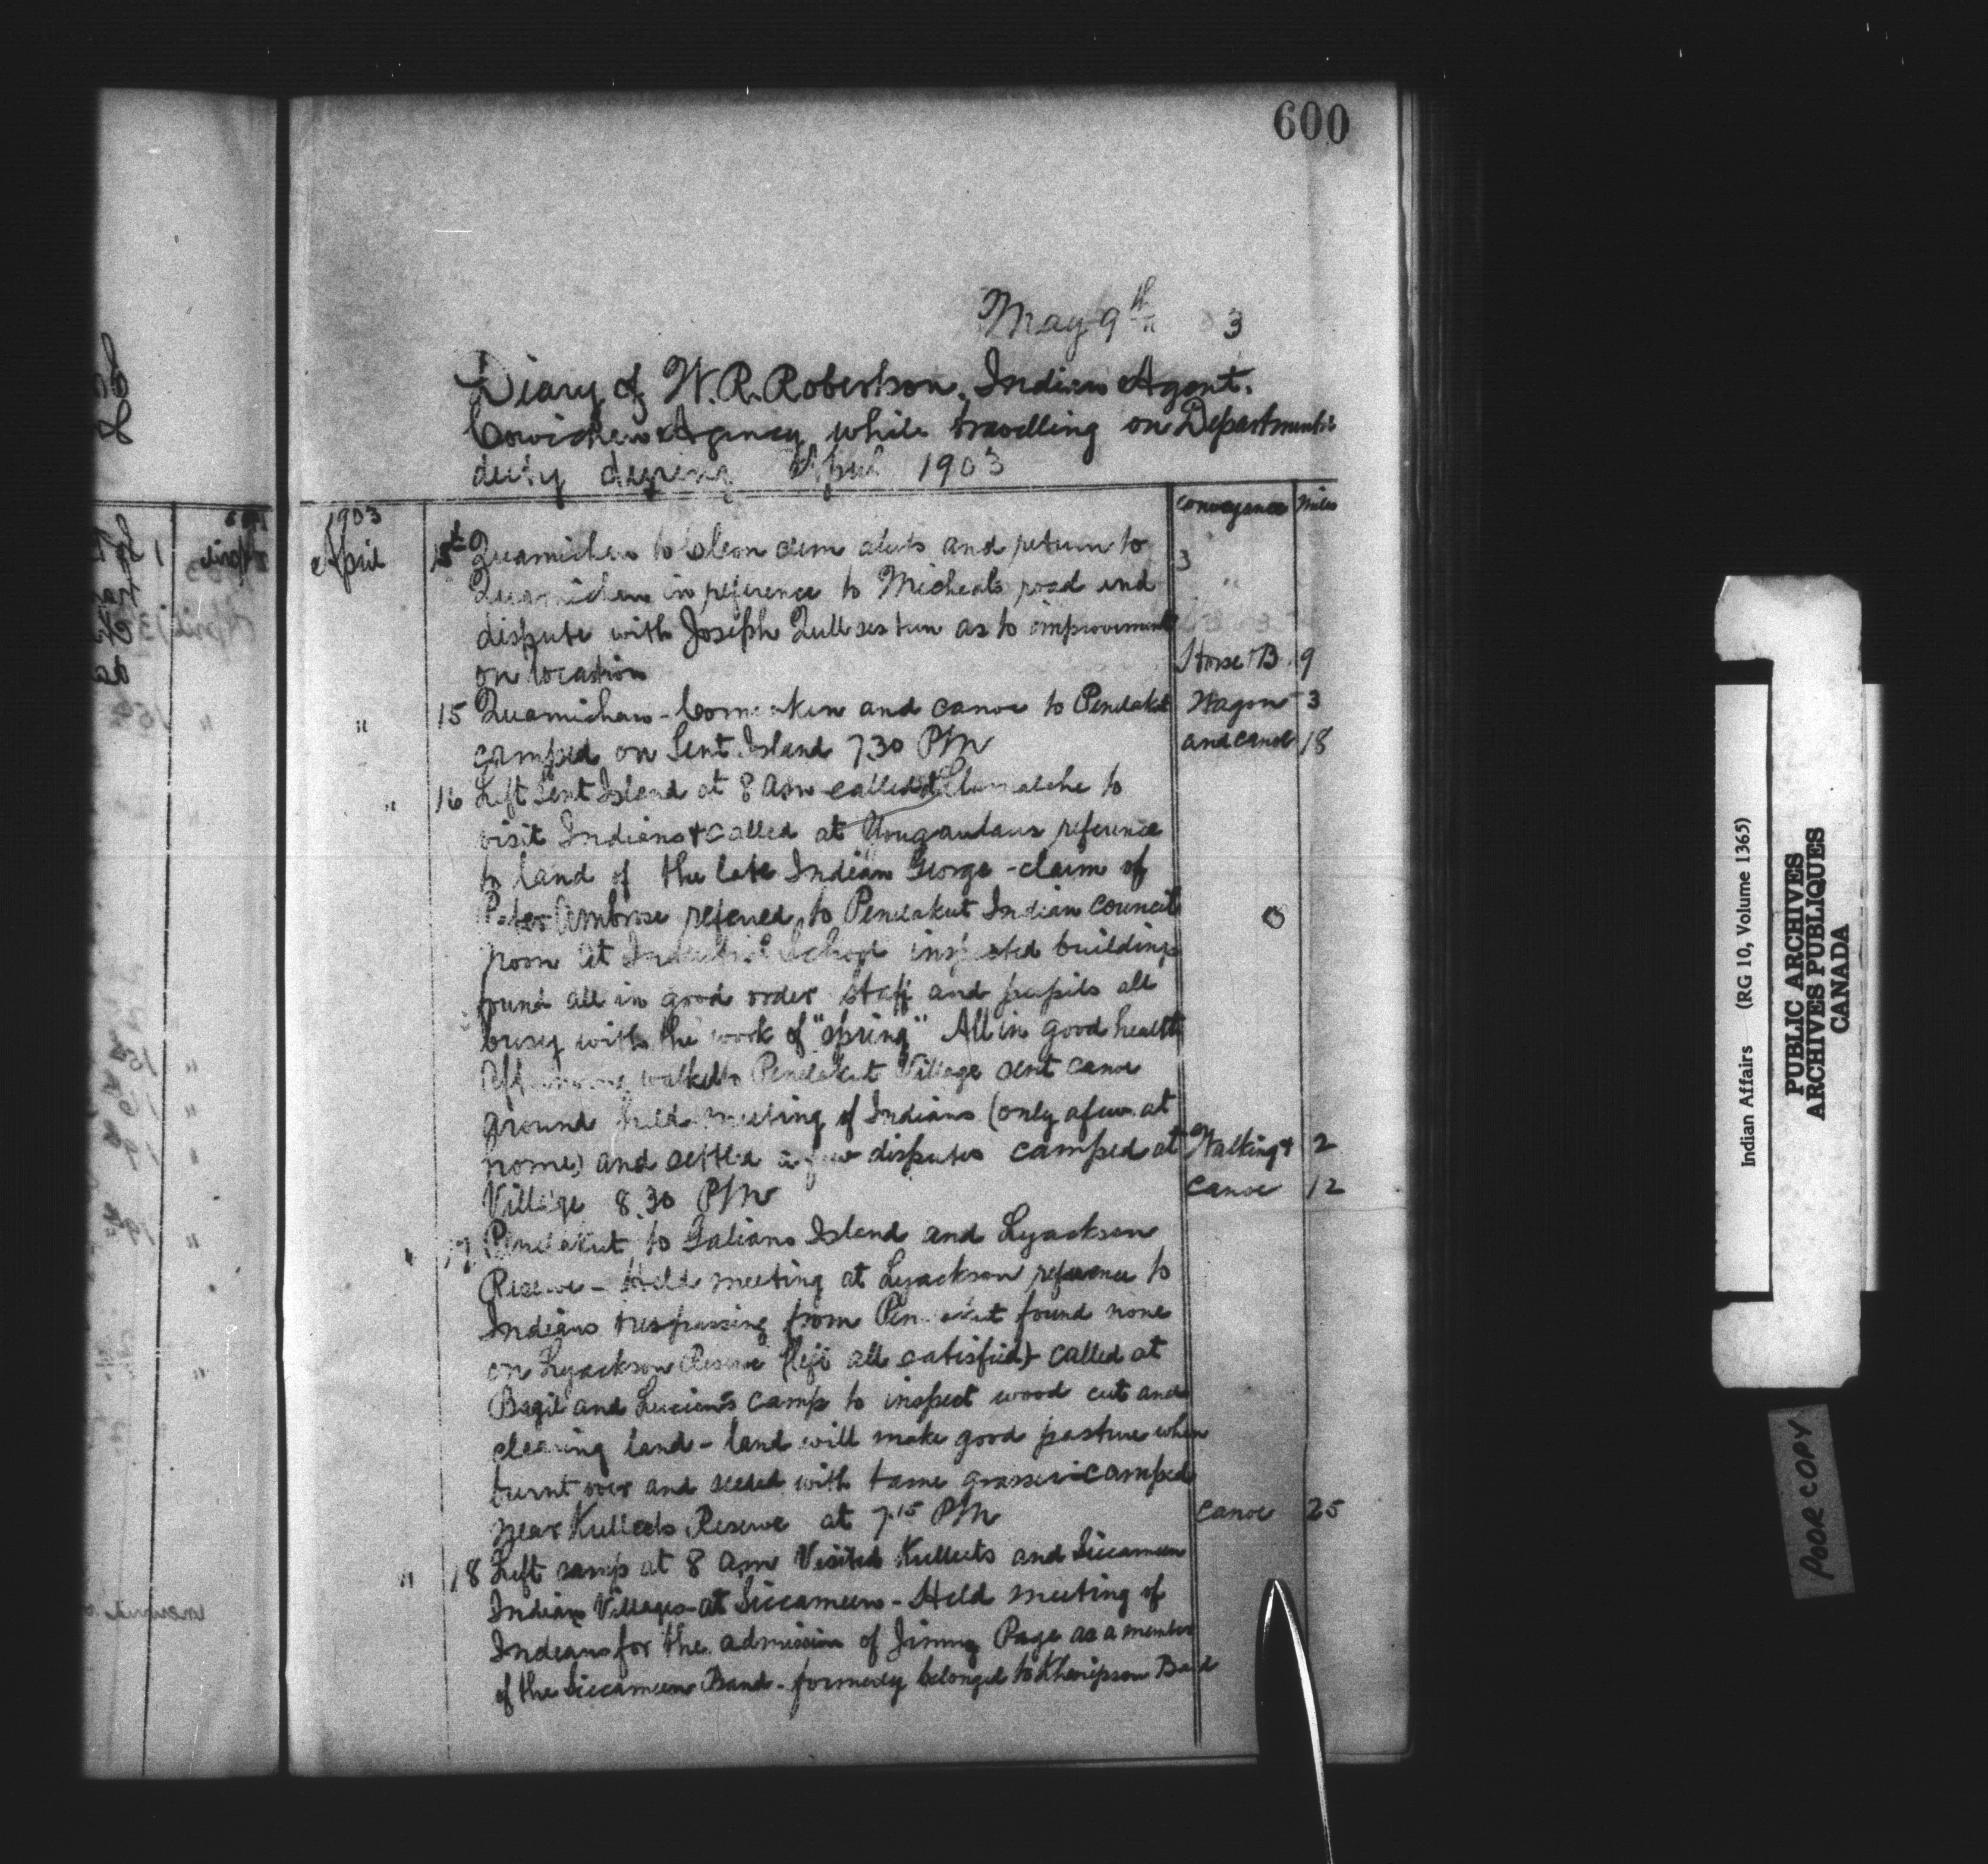 600
May 9th 3
Diary of W. R. Robertson, Indian Agent.
Cowichan Agency while travelling on Departmental
duty during April 1903
Conveyance Miles
1903
April 1st Quamichan to Cleon clem aluts and return to
Quamichan in reference to Micheal's road and
dispute with Joseph as to improvements
on location Horse B. 9
" 15 Quamichan - Comeaken and canoe to Penelakut Wagon 3
camped on Tent Island 7.30 PM and canoe 18
" 16 Left Tent Island at 8 am called at Llamalche to
visit Indians & called at reference
to land of the late Indian George - claim of
Peter Ambrose refered to Penelakut Indian Council
noon at Industrial School inspected buildings
found all in good order staff and pupils all
busy with the work of "spring" All in good health
Afternoon walked to Penelakut Village sent canoe
around held meeting of Indians (only a few at
home) and settled a few disputes camped at Walking & 2
Village 8.30 PM Canoe 12
" 17 Penelakut to Galiano Island and Lyackson
Reserve - Held meeting at Lyackson reference to
Indians trespassing from Penelakut found none
on Lyackson Reserve (left all satisfied) - called at
Bazil and Lucien's camp to inspect wood cut and
clearing land - land will make good pasture when
burnt over and seeded with tame grasses - camped
near Kulleets Reserve at 7.15 PM Canoe 25
" 18 Left camp at 8 am Visited Kulleets and Siccameen
Indian Villages - at Siccameen - Held meeting of
Indians for the admission of Jimmy Page as a member
of the Siccameen Band - formerly belonged to Khenipson Band
Indian Affairs (RG 10, Volume 1365)
PUBLIC ARCHIVES
ARCHIVES PUBLIQUES
CANADA
POOR COPY